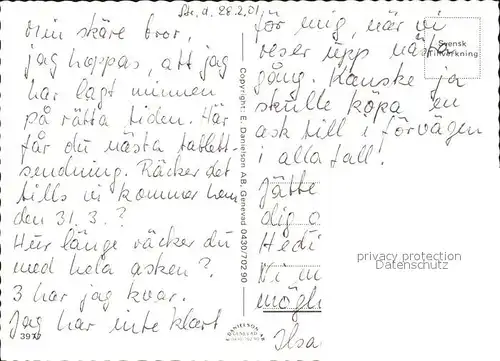 Sa, d. 28.2.01
Min skäre bror,
jag hoppas, att jag
har lagt minnen
på rätta tiden. Här
får du nästa tablett-
sendning. Räcker det
tills vi kommer hem
den 31. 3. ?
Hur länge räcker du
med hela asken ?
3 har jag kvar.
Jag har inte klart
3977
Copyright: E. Danielson AB, Genevad 0430/70290
DANIELSON
GENEVAD
för mig, när vi
reser upp nästa
gång. Kanske ja
skulle köpa en
ask till i förvägen
i alla fall !
Svensk
Tillverkning
Jätte
dig
Hedi
Vi
möjli
Ilsa
privacy protection
Datenschutz